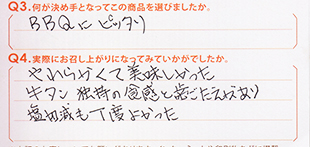 Q3.何が決め手となってこの商品を選びましたか。
BBQに ピッタリ
Q4.実際にお召し上がりになってみていかがでしたか。
やわらかくて美味しかった
牛タン 独特の食感と歯ごたえがあり
塩加減も丁度よかった